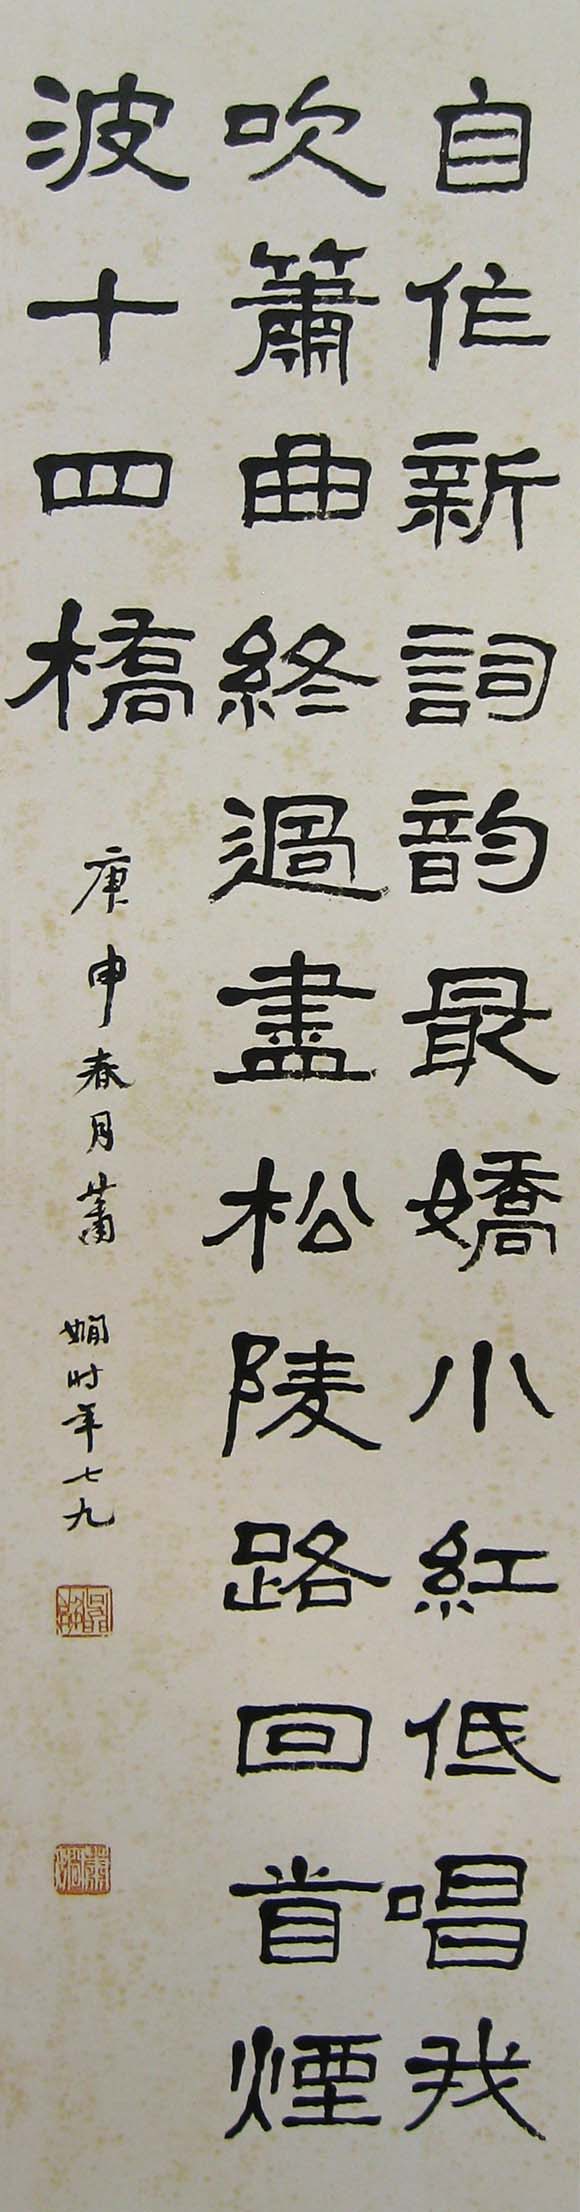 自作新詞韵最嬌小紅低唱我
吹簫曲終過盡松陵路回首煙
波十四橋
庚申春月蕭
嫺时年七九